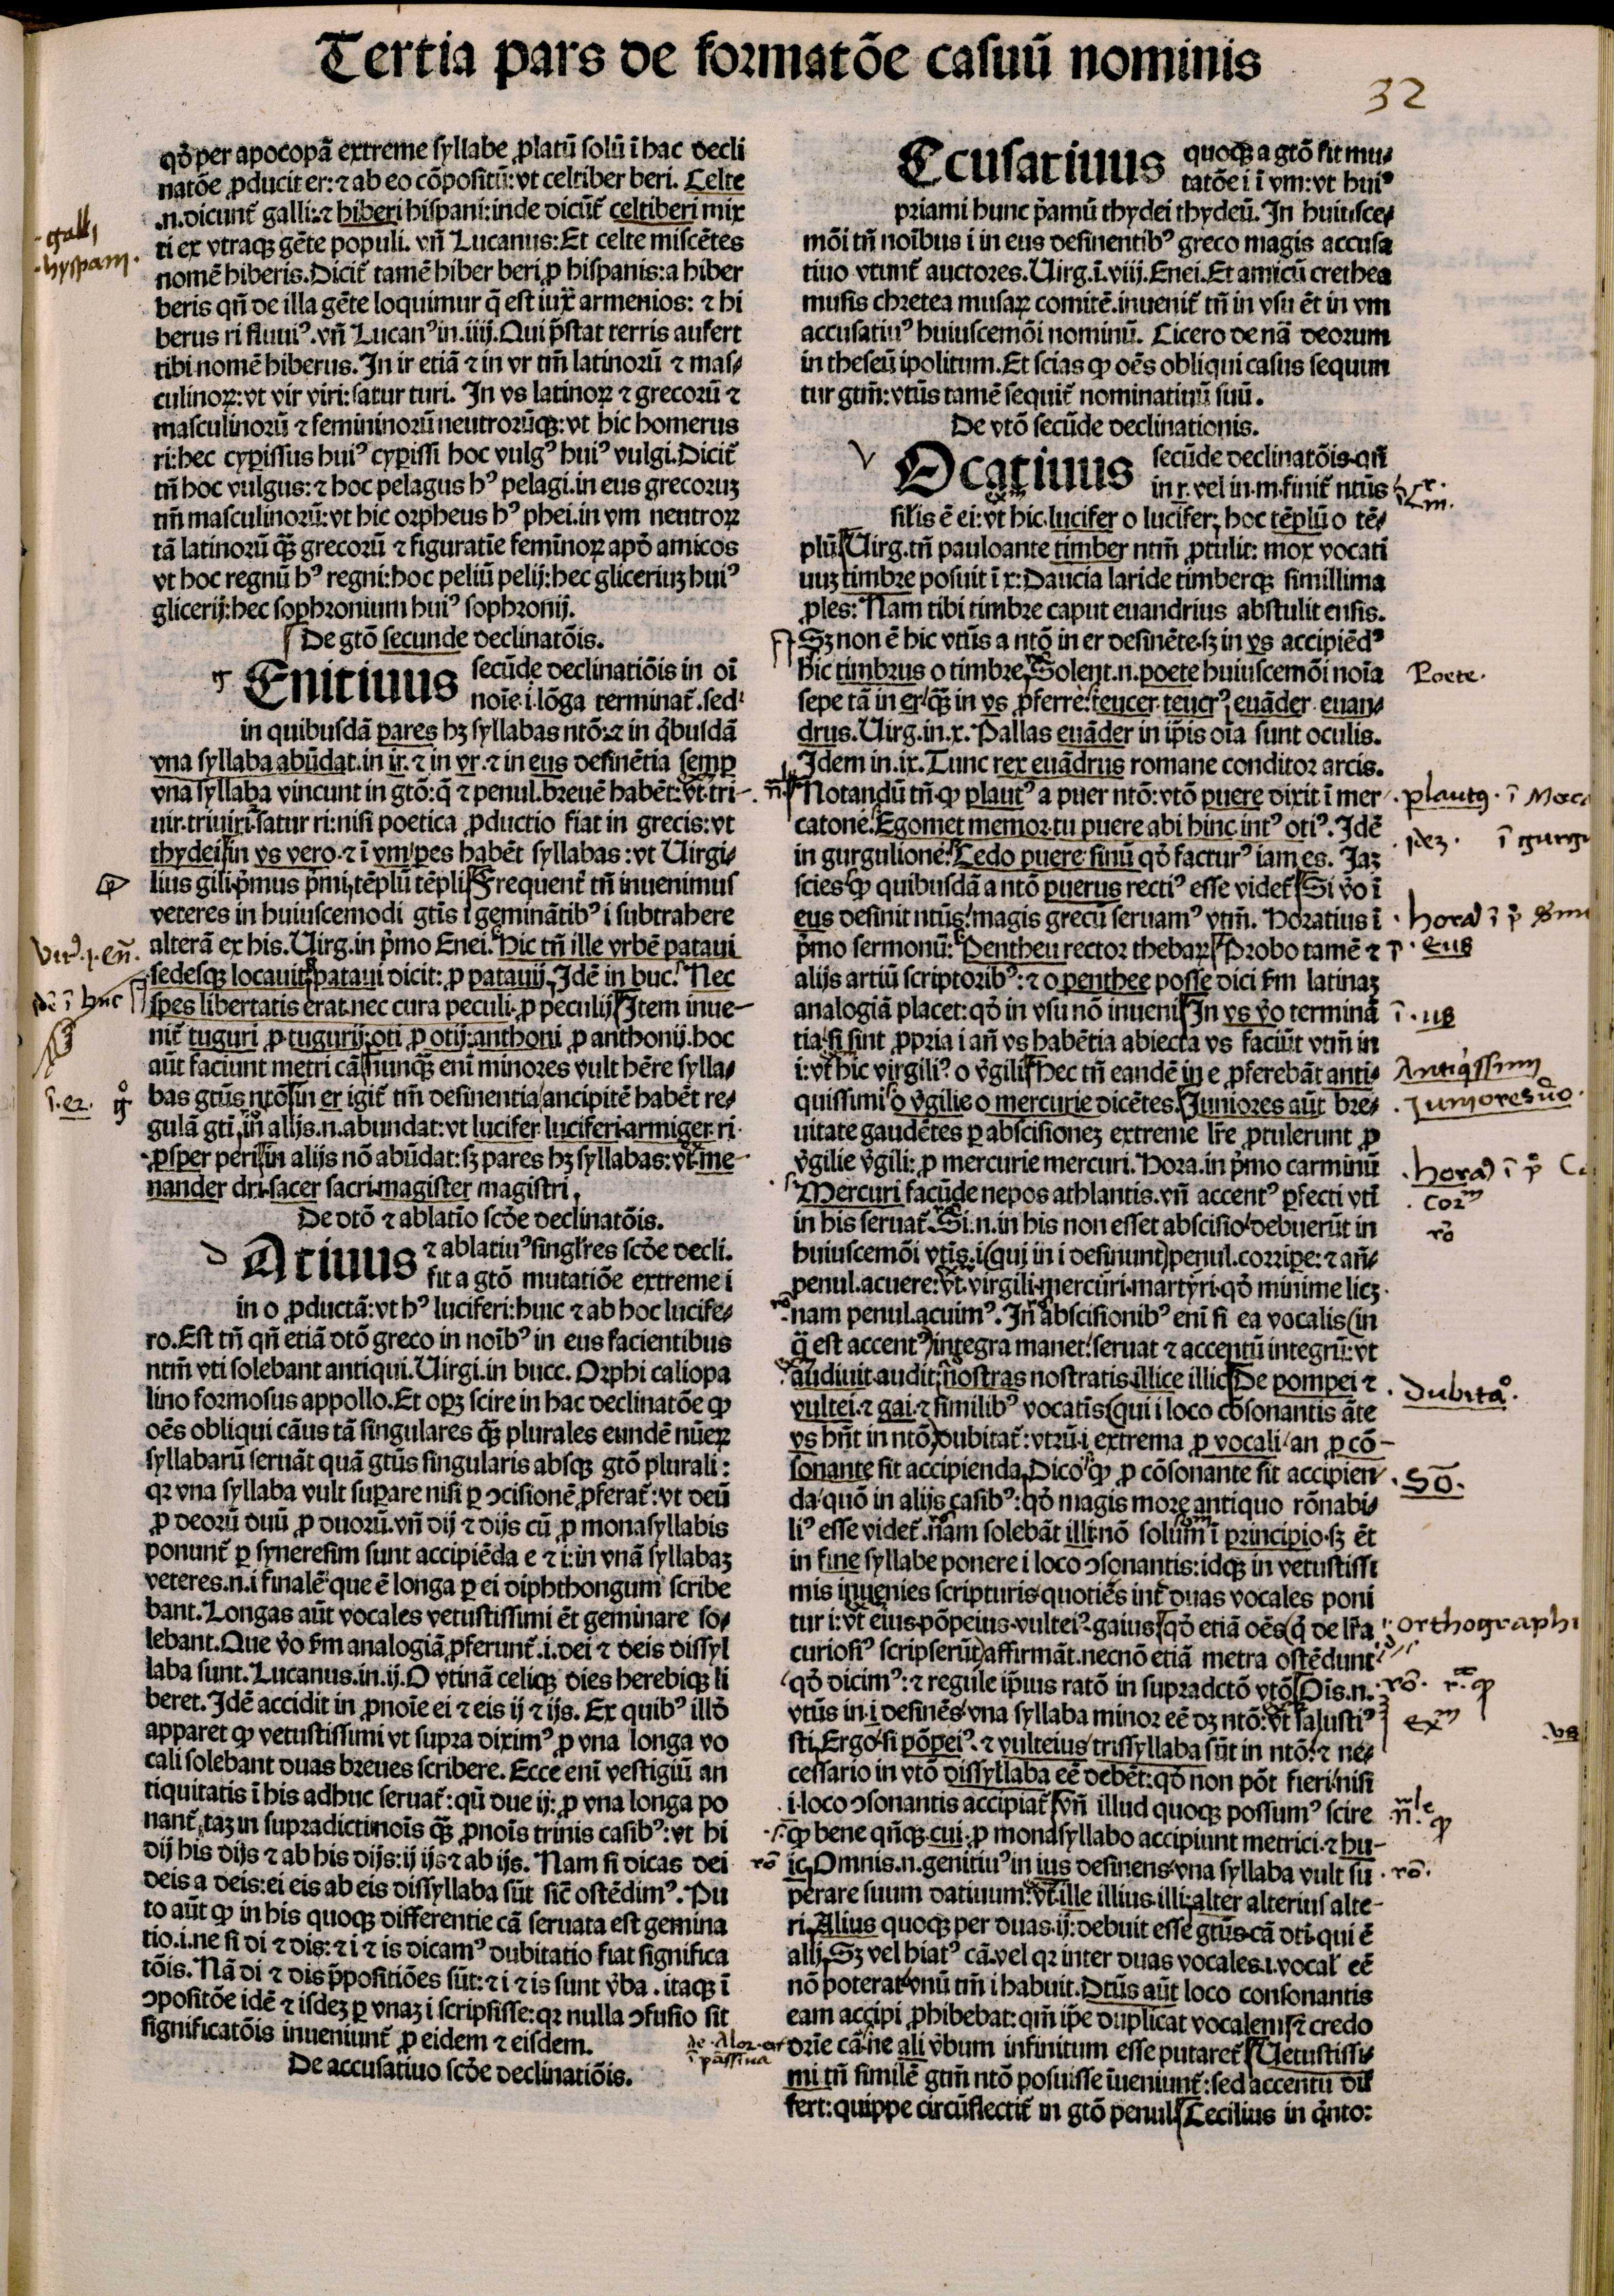 Tertia pars de formatõe casuũ nominis
32
qđ per apocopã extreme syllabe ꝓlatũ solũ ĩ hac decli
natõe ꝓducit er: ⁊ ab eo cõpositũ: vt celtiber beri. Celte
.n. dicunt̃ galli: ⁊ hiberi hispani: inde dicũt̃ celtiberi mix
ti ex vtraqꝫ gẽte populi. vñ Lucanus: Et celte miscẽtes
nomẽ hiberis. Dicit̃ tamẽ hiber beri ꝓ hispanis: a hiber
beris qñ de illa gẽte loquimur q̃ est iux̃ armenios: ⁊ hi
berus ri fluuiꝰ. vñ Lucanꝰ in .iiij. Qui p̃stat terris aufert
tibi nomẽ hiberus. In ir etiã ⁊ in vr tm̃ latinorũ ⁊ mas⸗
culinoꝝ: vt vir viri: satur turi. In vs latinoꝝ ⁊ grecorũ ⁊
masculinorũ ⁊ femininorũ neutrorũqꝫ: vt hic homerus
ri: hec cyꝑissus huiꝰ cyꝑissi hoc vulgꝰ huiꝰ vulgi. Dicit̃
tñ hoc vulgus: ⁊ hoc pelagus hꝰ pelagi. in eus grecoruꝫ
tm̃ masculinorũ: vt hic orpheus hꝰ phei. in vm neutroꝝ
tã latinorũ qꝫ̃ grecorũ ⁊ figuratĩe femĩnoꝝ apđ amicos
vt hoc regnũ hꝰ regni: hoc peliũ pelij: hec gliceriuꝫ huiꝰ
glicerij: hec sophronium huiꝰ sophronij.
De gtõ secunde declinatõis.
Enitiuus secũde declinatiõis in oĩ
noĩe .i. lõga terminat̃. sed
in quibusdã pares hꝫ syllabas ntõ: ⁊ in q̃busdã
vna syllaba abũdat. in ir. ⁊ in vr. ⁊ in eus desinẽtia semꝑ
vna syllaba vincunt in gtõ: q̃ ⁊ penul. breuẽ habẽt: vt. tri⸗
uir. triuiri. satur ri: nisi poetica ꝓductio fiat in grecis: vt
thydei in vs vero. ⁊ ĩ vm pes habẽt syllabas: vt Uirgi⸗
lius gili p̃mus p̃mi, tẽplũ tẽpli Frequent̃ tñ inuenimus
veteres in huiuscemodi gtĩs ĩ geminãtibꝰ i subtrahere
alterã ex his. Uirg. in p̃mo Enei. Hic tñ ille vrbẽ pataui
sedesqꝫ locauit pataui dicit: ꝓ patauij. Idẽ in buc. Nec
spes libertatis erat. nec cura peculi. ꝓ peculij Item inue⸗
nit̃ tuguri ꝓ tugurij: oti ꝓ otij: anthoni ꝓ anthonij. hoc
aũt faciunt metri cã nunqꝫ̃ enĩ minores vult hẽre sylla⸗
bas gtũs ntõ in er igit̃ tm̃ desinentia ancipitẽ habẽt re⸗
gulã gti, in alijs .n. abundat: vt lucifer luciferi. armiger ri.
ꝓsper peri in alijs nõ abũdat: sꝫ pares hꝫ syllabas: vt me⸗
nander dri. sacer sacri. magister magistri.
De dtõ ⁊ ablatĩo scđe declinatõis.
Atiuus ⁊ ablatiuꝰ singl̃res scđe decli.
fit a gtõ mutatiõe extreme i
in o ꝓductã: vt hꝰ luciferi: huic ⁊ ab hoc lucife⸗
ro. Est tñ qñ etiã dtõ greco in noĩbꝰ in eus facientibus
ntm̃ vti solebant antiqui. Uirgi. in bucc. Orphi caliopa
lino formosus appollo. Et opꝫ scire in hac declinatõe ꝙ
oẽs obliqui cãus tã singulares qꝫ̃ plurales eundẽ nũeꝝ
syllabarũ seruãt quã gtũs singularis absqꝫ gtõ plurali:
qꝛ vna syllaba vult suꝑare nisi ꝑ ↄcisionẽ ꝓferat̃: vt deũ
ꝓ deorũ duũ ꝓ duorũ. vñ dij ⁊ dijs cũ ꝓ monasyllabis
ponunt̃ ꝑ syneresim sunt accipiẽda e ⁊ i: in vnã syllabaꝫ
veteres .n. i finalẽ que ẽ longa ꝑ ei diphthongum scribe
bant. Longas aũt vocales vetustissimi ẽt geminare so⸗
lebant. Que v̊o fm̃ analogiã ꝓferunt̃ .i. dei ⁊ deis dissyl
laba sunt. Lucanus. in .ij. O vtinã celiqꝫ dies herebiqꝫ li
beret. Idẽ accidit in ꝓnoĩe ei ⁊ eis ij ⁊ ijs. Ex quibꝰ illđ
apparet ꝙ vetustissimi vt supra diximꝰ ꝓ vna longa vo
cali solebant duas breues scribere. Ecce enĩ vestigiũ an
tiquitatis ĩ his adhuc seruat̃: qũ due ij: ꝓ vna longa po
nant̃, taꝫ in supradicti noĩs qꝫ̃ ꝓnoĩs trinis casibꝰ: vt hi
dij his dijs ⁊ ab his dijs: ij ijs ⁊ ab ijs. Nam si dicas dei
deis a deis: ei eis ab eis dissyllaba sũt sic̃ ostẽdimꝰ. Pu
to aũt ꝙ in his quoqꝫ differentie cã seruata est gemina
tio .i. ne si di ⁊ dis: ⁊ i ⁊ is dicamꝰ dubitatio fiat significa
tõis. Nã di ⁊ dis p̃positiões sũt: ⁊ i ⁊ is sunt v̊ba. itaqꝫ ĩ
ↄpositõe idẽ ⁊ isdeꝫ ꝑ vnaꝫ i scripsisse: qꝛ nulla ↄfusio sit
significatõis inueniunt̃ ꝓ eidem ⁊ eisdem.
De accusatiuo scđe declinatiõis.
Ccusatiuus quoqꝫ a gtõ fit mu⸗
tatõe i ĩ vm: vt huiꝰ
priami hunc p̃amũ thydei thydeũ. In huiusce⸗
mõi tñ noĩbus i in eus desinentibꝰ greco magis accusa
tiuo vtunt̃ auctores. Uirg. ĩ .viij. Enei. Et amicũ crethea
musis chretea musaꝝ comitẽ. inuenit̃ tñ in vsu ẽt in vm
accusatiuꝰ huiuscemõi nominũ. Cicero de nã deorum
in theseũ ipolitum. Et scias ꝙ oẽs obliqui casus sequun
tur gtm̃: vtũs tamẽ sequit̃ nominatiuũ suũ.
De vtõ secũde declinationis.
Ocatiuus secũde declinatõis. qñ
in r. vel in .m. finit̃ ntũs
sil̃is ẽ ei: vt hic. lucifer o lucifer, hoc tẽplũ o tẽ⸗
plũ Uirg. tñ pauloante timber ntm̃ ꝓtulit: mox vocati
uuꝫ timbre posuit ĩ x: Daucia laride timberqꝫ simillima
ꝓles: Nam tibi timbre caput euandrius abstulit ensis.
Sꝫ non ẽ hic vtũs a ntõ in er desinẽte. sꝫ in vs accipiẽdꝰ
hic timbrus o timbre, Solent .n. poete huiuscemõi noĩa
sepe tã in er qꝫ̃ in vs ꝓferre: teucer. teucrꝰ, euãder. euan⸗
drus. Uirg. in .x. Pallas euãder in ip̃is oĩa sunt oculis.
Idem in .ix. Tunc rex euãdrus romane conditor arcis.
Notandũ tñ. ꝙ plautꝰ a puer ntõ: vtõ puere dixit ĩ mer
catone. Egomet memor. tu puere abi hinc intꝰ otiꝰ. Idẽ
in gurgulione. Cedo puere sinũ qđ facturꝰ iam es. Iaꝫ
scies ꝙ quibusdã a ntõ puerus rectiꝰ esse videt̃ Si v̊o ĩ
eus desinit ntũs magis grecũ seruamꝰ vtm̃. Horatius ĩ
p̃mo sermonũ: Pentheu rector thebaꝝ Probo tamẽ ⁊
alijs artiũ scriptoribꝰ: ⁊ o penthee posse dici fm̃ latinaꝫ
analogiã placet: qđ in vsu nõ inueni In vs v̊o terminã
tia si sint ꝓpria i añ vs habẽtia abiecta vs faciũt vtm̃ in
i: vt hic virgiliꝰ o v̊gili Hec tñ eandẽ in e ꝓferebãt anti⸗
quissimi o v̊gilie o mercurie dicẽtes. Iuniores aũt bre⸗
uitate gaudẽtes ꝑ abscisioneꝫ extreme lr̃e ꝓtulerunt ꝓ
v̊gilie v̊gili: ꝓ mercurie mercuri. Hora. in p̃mo carminũ
Mercuri facũde nepos athlantis. vñ accentꝰ ꝑfecti vtĩ
in his seruat̃. Si .n. in his non esset abscisio debuerũt in
huiuscemõi vtĩs .i. (qui in i desinunt) penul. corriꝑe: ⁊ añ⸗
penul. acuere: vt. virgili. mercuri. martyri. qđ minime licꝫ.
nam penul. acuimꝰ. In abscisionibꝰ enĩ si ea vocalis (in
q̃ est accentꝰ) integra manet: seruat ⁊ accentũ integrũ: vt
audiuit. audit, nostras nostratis. illice illic De pompei ⁊
vultei. ⁊ gai. ⁊ similibꝰ vocatĩs (qui i loco cõsonantis ãte
vs hñt in ntõ) dubitat̃: vtrũ .i. extrema ꝓ vocali an ꝓ cõ⸗
sonante sit accipienda, Dico ꝙ ꝓ cõsonante sit accipien⸗
da quõ in alijs casibꝰ: qđ magis more antiquo rõnabi⸗
liꝰ esse videt̃. nam solebãt illi. nõ solum ĩ principio. sꝫ ẽt
in fine syllabe ponere i loco ↄsonantis: idqꝫ in vetustissi
mis inuenies scripturis. quotiẽs int̃ duas vocales poni
tur i: vt eius. põpeius. vulteiꝰ. gaius qđ etiã oẽs (q̃ de lr̃a
curiosiꝰ scripserũt) affirmãt. necnõ etiã metra ostẽdunt
qđ dicimꝰ: ⁊ regule ip̃ius ratõ in supradctõ vtõ Oĩs .n.
vtũs in .i. desinẽs vna syllaba minor eẽ dꝫ ntõ: vt salustiꝰ
sti, Ergo si põpeiꝰ. ⁊ vulteius trissyllaba sũt in ntõ: ⁊ ne⸗
cessario in vtõ dissyllaba eẽ debẽt: qđ non põt fieri nisi
.i. loco ↄsonantis accipiat̃ vñ illud quoqꝫ possumꝰ scire
ꝙ bene qñqꝫ. cui. ꝓ monasyllabo accipiunt metrici. ⁊ hu⸗
ic, Omnis .n. genitiuꝰ in ius desinens vna syllaba vult su
perare suum datiuum: vt. ille illius. illi: alter alterius alte⸗
ri, Alius quoqꝫ per duas .ij: debuit esse gtũs cã dti. qui ẽ
alij, Sꝫ vel hiatꝰ cã. vel qꝛ inter duas vocales .i. vocal̃ eẽ
nõ poterat vnũ tm̃ i habuit. Dtũs aũt loco consonantis
eam accipi ꝓhibebat: qm̃ ip̃e duplicat vocalem ⁊ credo
drĩe cã ne ali v̊bum infinitum esse putaret̃ Uetustissi⸗
mi tñ similẽ gtm̃ ntõ posuisse ĩueniunt̃: sed accentu dif
fert: quippe circũflectit̃ in gtõ penul Cecilius in q̃nto:
galli
hyspani.
Poete.
Antiq̃ssimi
Juniores v̊o.
Dubitaͦ.
Sõ.
orthographi
rõ.